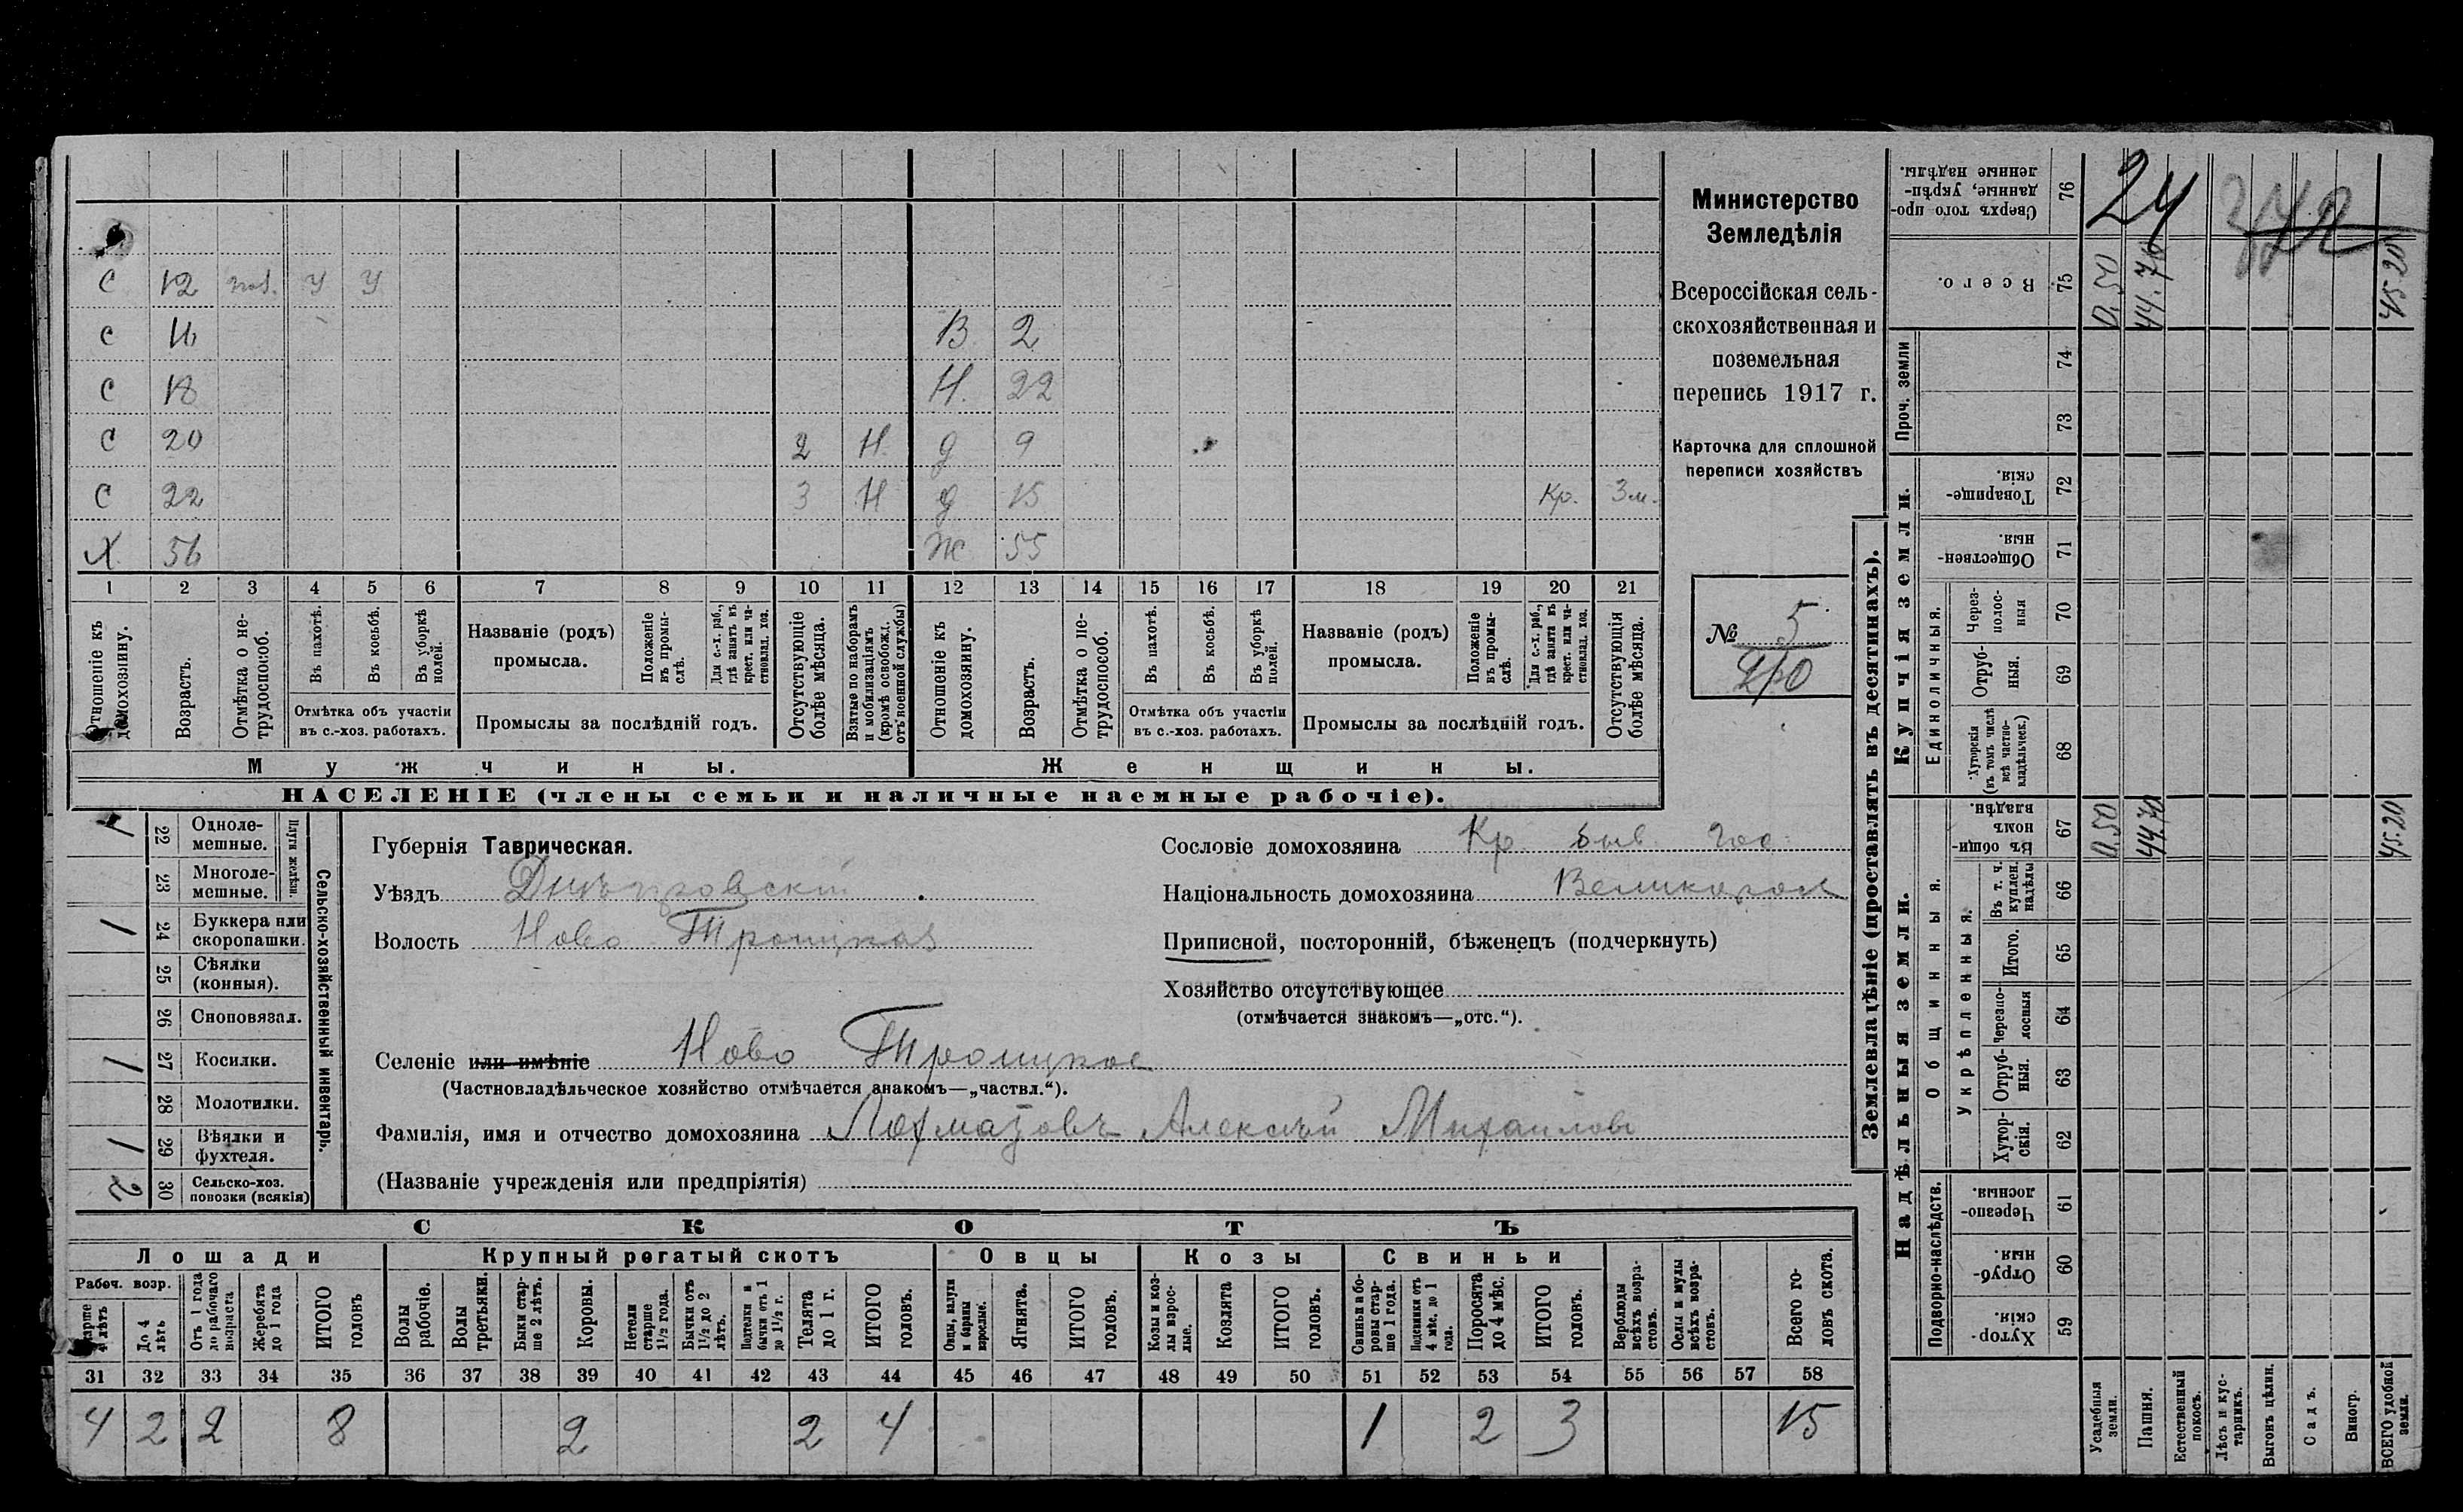 С 12 пол. У У
С 16 В 2
С 18 Н. 22
С 20 2 Н. д 9
С 22 3 Н д 15 Кр. 3 м.
Х 56 Ж 55
1 2 3 4 5 6 7 8 9 10 11 12 13 14 15 16 17 18 19 20 21
Отношеніе къ домохозяину.
Возрастъ.
Отмѣтка о нетрудоспособ.
Въ пахотѣ.
Въ косьбѣ.
Въ уборкѣ полей.
Отмѣтка объ участіи
въ с.-хоз. работахъ.
Названіе (родъ)
промысла.
Положеніе въ промыслѣ.
Для с.-х. раб., гдѣ занятъ въ крест. или частновлад. хоз.
Промыслы за послѣдній годъ.
Отсутствующіе болѣе мѣсяца.
Взятые по наборамъ и мобилизаціямъ (кромѣ освобожд. отъ военной службы)
Отношеніе къ домохозяину.
Возрастъ.
Отмѣтка о нетрудоспособ.
Въ пахотѣ.
Въ косьбѣ.
Въ уборкѣ полей.
Отмѣтка объ участіи
въ с.-хоз. работахъ.
Названіе (родъ)
промысла.
Положеніе въ промыслѣ.
Для с.-х. раб., гдѣ занята въ крест. или частновлад. хоз.
Промыслы за послѣдній годъ.
Отсутствующія болѣе мѣсяца.
Мужчины.
Женщины.
НАСЕЛЕНІЕ (члены семьи и наличные наемные рабочіе).
Министерство
Земледѣлія
Всероссійская сель-
скохозяйственная и
поземельная
перепись 1917 г.
Карточка для сплошной
переписи хозяйствъ
№ 5
Губернія Таврическая.
Уѣздъ Днѣпровскій
Волость Ново Троицкая
Селеніе или имѣніе Ново Троицкое
(Частновладѣльческое хозяйство отмѣчается знакомъ—„частвл.“).
Фамилія, имя и отчество домохозяина Лохматовъ Алексѣй Михайлов
(Названіе учрежденія или предпріятія)
Сословіе домохозяина Кр. быв. гос.
Національность домохозяина Великоросс
Приписной, посторонній, бѣженецъ (подчеркнуть)
Хозяйство отсутствующее
(отмѣчается знакомъ—„отс.“).
Сельско-хозяйственный инвентарь.
Плуги желѣзн.
22 Одноле-
мешные. 1
23 Многоле-
мешные.
24 Буккера или
скоропашки. 1
25 Сѣялки
(конныя).
26 Сноповязал.
27 Косилки. 1
28 Молотилки.
29 Вѣялки и
фухтеля. 1
30 Сельско-хоз.
повозки (всякія) 2
СКОТЪ
Лошади
Крупный рогатый скотъ
Овцы
Козы
Свиньи
Рабоч. возр.
Старше 4 лѣтъ
До 4 лѣтъ
Отъ 1 года до рабочаго возраста
Жеребята до 1 года
ИТОГО головъ
Волы рабочіе.
Волы третьяки.
Быки старше 2 лѣтъ.
Коровы.
Нетели старше 1½ года.
Бычки отъ 1½ до 2 лѣтъ.
Подтелки и бычки отъ 1 до 1½ г.
Телята до 1 г.
ИТОГО головъ.
Овцы, валухи и бараны взрослые.
Ягнята.
ИТОГО головъ.
Козы и козлы взрослые.
Козлята
ИТОГО головъ.
Свиньи и боровы старше 1 года.
Подсвинки отъ 4 мѣс. до 1 года.
Поросята до 4 мѣс.
ИТОГО головъ.
Верблюды всѣхъ возрастовъ.
Ослы и мулы всѣхъ возрастовъ.
Всего головъ скота.
31 32 33 34 35 36 37 38 39 40 41 42 43 44 45 46 47 48 49 50 51 52 53 54 55 56 57 58
4 2 2 8 2 2 4 1 2 3 15
Землевладѣніе (проставлять въ десятинахъ).
Купчія земли.
Надѣльныя земли.
Сверхъ того проданные, укрѣпленные надѣлы. 76
24
Всего. 75 0,50 44.70 45.20
Проч. земли 74
73
Товарищескія. 72
Общественныя. 71
Единоличныя.
Черезполосныя 70
Отрубныя. 69
Хуторскія (въ томъ числѣ всѣ частновладѣльческ.) 68
Общинныя.
Въ общинномъ владѣн. 67 0,50 44.70 45.20
Укрѣпленныя.
Въ т. ч. куплен. надѣлы 66
Итого. 65
Черезполосныя 64
Отрубныя. 63
Хуторскія. 62
Подворно-наслѣдств.
Черезполосныя. 61
Отрубныя. 60
Хуторскія. 59
Усадебныя земли.
Пашня.
Естественный покосъ.
Лѣсъ и кустарникъ.
Выгонъ цѣлин.
Садъ.
Виногр.
ВСЕГО удобной земли.